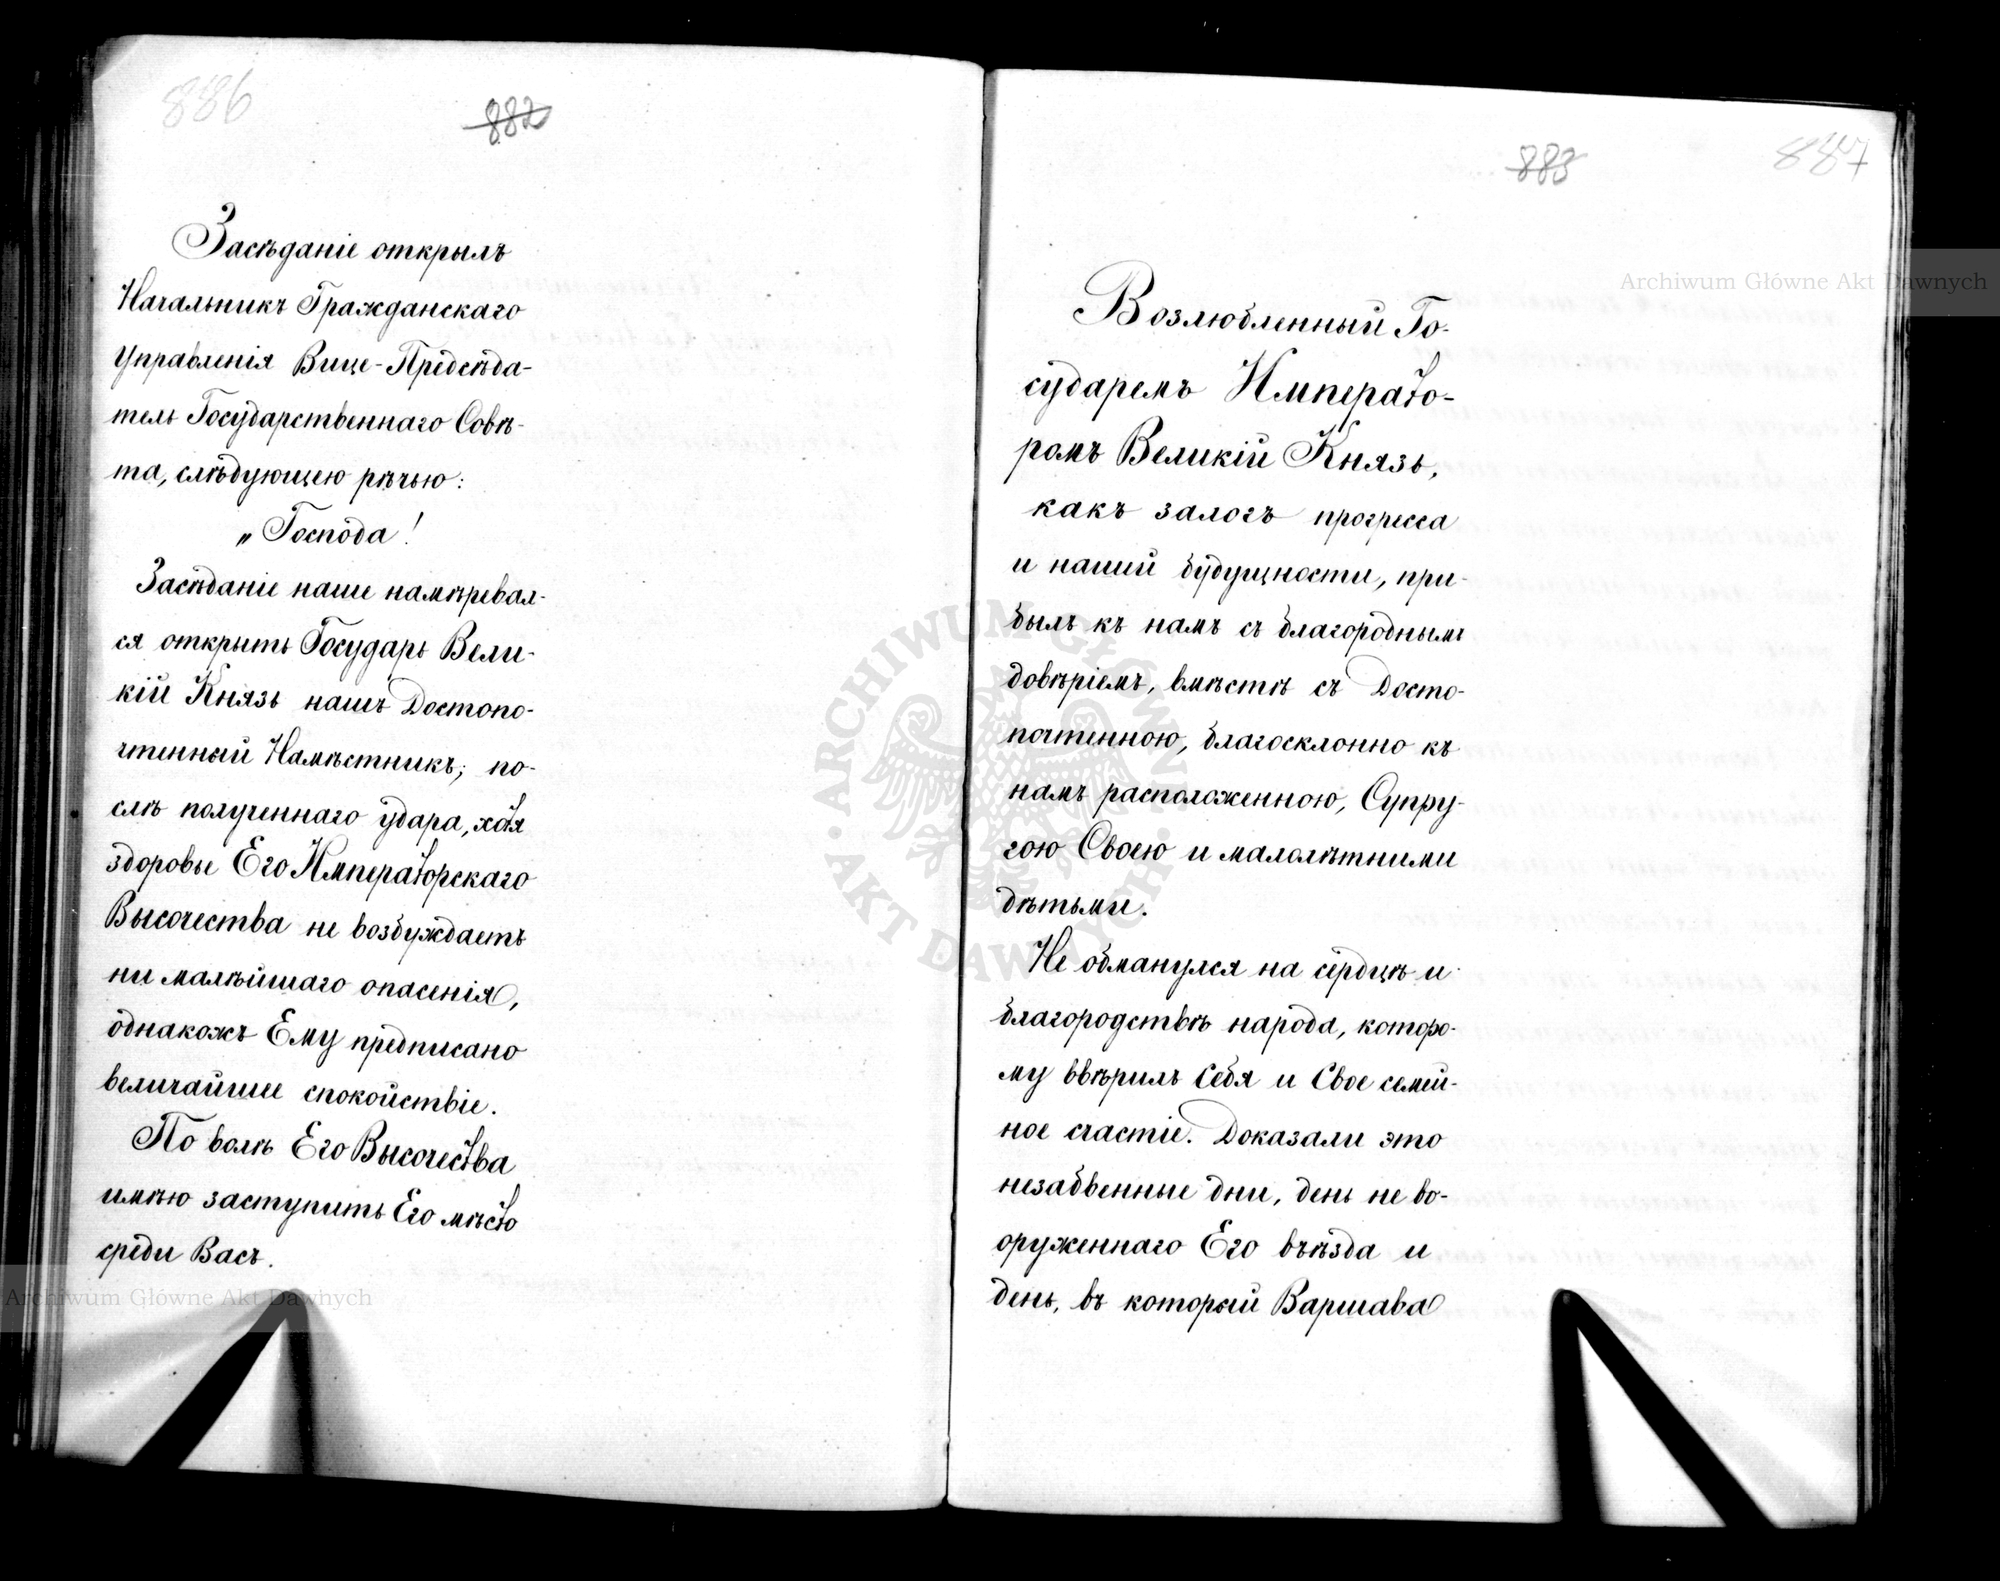 886
882
Засѣданіе открылъ
Начальникъ Гражданскаго
Управленія Вице-Предсѣда-
тель Государственнаго Совѣ-
та, слѣдующею рѣчью:
„Господа!
Засѣданіе наше намѣревал-
ся открыть Государь Вели-
кій Князь нашъ Достопо-
чтенный Намѣстникъ; по-
слѣ полученнаго удара, хотя
здоровье Его Императорскаго
Высочества не возбуждаетъ
ни малѣйшаго опасенія,
однакожъ Ему предписано
величайшее спокойствіе.
По волѣ Его Высочества
имѣю заступить Его мѣсто
среди Васъ.
883
887
Возлюбленный Го-
сударемъ Императо-
ромъ Великій Князь,
какъ залогъ прогресса
и нашей будущности, при-
былъ къ намъ съ благороднымъ
довѣріемъ, вмѣстѣ съ Досто-
почтенною, благосклонно къ
намъ расположенною, Супру-
гою Своею и малолѣтними
дѣтьми.
Не обманулся на сердцѣ и
благородствѣ народа, которо-
му ввѣрилъ Себя и Свое семей-
ное счастіе. Доказали это
незабвенные дни, день не во-
оруженнаго Его въѣзда и
день, въ который Варшава
Archiwum Główne Akt Dawnych
ARCHIWUM GŁÓWNE AKT DAWNYCH
Archiwum Główne Akt Dawnych